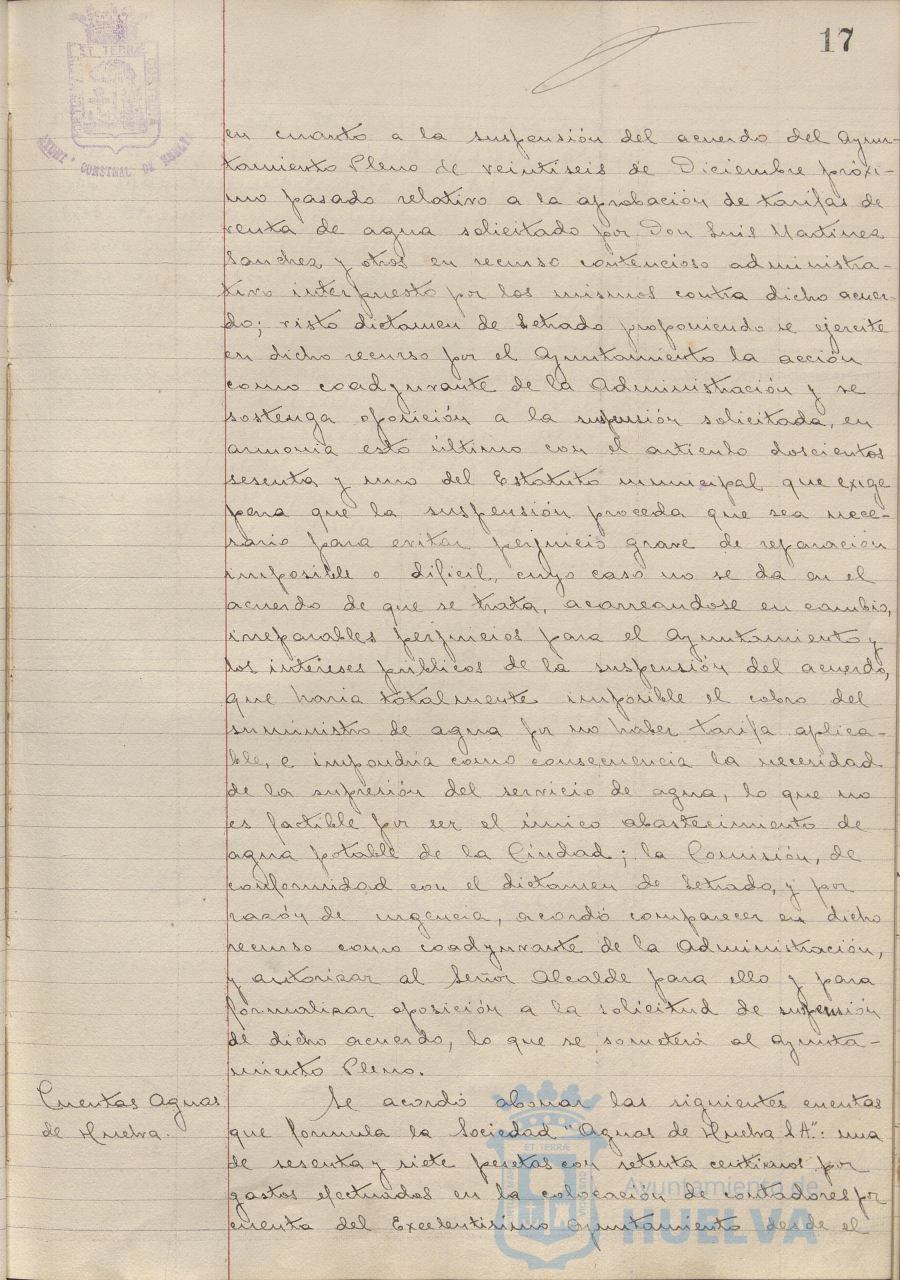 17
ET TERRÆ
CONSTNAL DE HUELVA
en cuanto a la suspensión del acuerdo del Ayun-
tamiento Pleno de veintiseis de Diciembre próxi-
mo pasado relativo a la aprobación de tarifas de
venta de agua solicitado por Don Luis Martinez
Sanchez y otros en recurso contencioso administra-
tivo interpuesto por los mismos contra dicho acuer-
do; visto dictamen de Letrado proponiendo se ejercite
en dicho recurso por el Ayuntamiento la acción
como coadyuvante de la Administración y se
sostenga oposición a la suspensión solicitada, en
armonia esto último con el articulo doscientos
sesenta y uno del Estatuto municipal que exige
para que la suspensión proceda que sea nece-
sario para evitar perjuicio grave de reparación
imposible o dificil, cuyo caso no se da en el
acuerdo de que se trata, acarreandose en cambio,
irreparables perjuicios para el Ayuntamiento y
los intereses públicos de la suspensión del acuerdo,
que haria totalmente imposible el cobro del
suministro de agua por no haber tarifa aplica-
ble, e impondria como consecuencia la necesidad
de la supresión del servicio de agua, lo que no
es factible por ser el único abastecimiento de
agua potable de la Ciudad; la Comisión, de
conformidad con el dictamen de Letrado, y por
razón de urgencia, acordó comparecer en dicho
recurso como coadyuvante de la Administración,
y autorizar al Señor Alcalde para ello y para
formalizar oposición a la solicitud de suspensión
de dicho acuerdo, lo que se someterá al Ayunta-
miento Pleno.
Cuentas Aguas
de Huelva.
Se acordó abonar las siguientes cuentas
que formula la Sociedad "Aguas de Huelva S.A.": una
de sesenta y siete pesetas con setenta centimos por
gastos efectuados en la colocación de contadores por
cuenta del Excelentisimo Ayuntamiento desde el
ET TERRÆ
Ayuntamiento de
HUELVA